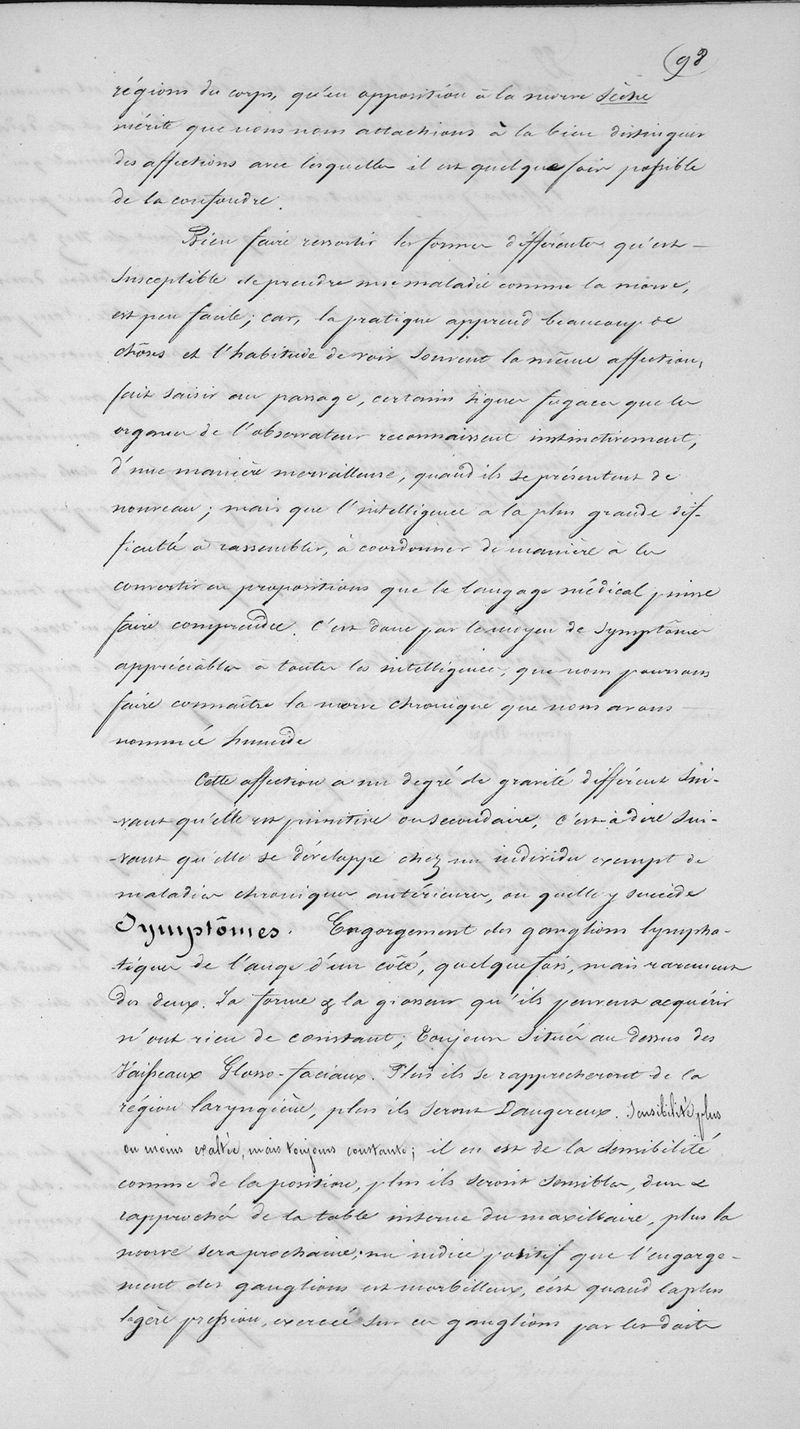 (98
régions du corps, qu'en opposition à la morve sèche
mérite que nous nous attachions à la bien distinguer
des affections avec lesquelles il est quelque fois possible
de la confondre.
Bien faire ressortir les formes différentes qu'est
susceptible de prendre une maladie comme la morve,
est peu facile; car, la pratique apprend beaucoup de
chôses et l'habitude de voir souvent la même affection,
fait saisir au passage, certains signes fugaces que les
organes de l'observateur reconnaissent instinctivement,
d'une manière merveilleuse, quand ils se présentent de
nouveau; mais que l'intelligence a la plus grande dif-
ficulté à rassembler, à coordonner de manière à les
convertir en propositions que le langage médical puisse
faire comprendre. C'est donc par le moyen de symptômes
appréciables à toutes les intelligences, que nous pourrons
faire connaître la morve chronique que nous avons
nommée humide
Cette affection a un degré de gravité différent sui-
-vant qu'elle est primitive ou secondaire, c'est à dire sui-
-vant qu'elle se développe chez un individu exempt de
maladies chroniques antérieures, ou quelle y succède
Symptômes. Engorgement des ganglions lympha-
tiques de l'auge d'un côté, quelquefois, mais rarement
des deux. La forme & la grosseur qu'ils peuvent acquérir
n'ont rien de constant; Toujours situés au dessus des
Vaisseaux Glosso-faciaux. Plus ils se rapprocheront de la
région laryngiène, plus ils seront Dangereux. Sensibilité plus
ou moins exaltée, mais toujours constante; il en est de la sensibilité
comme de la position, plus ils seront sensibles, durs &
rapprochés de la table interne du maxillaire, plus la
morve sera prochaine; un indice positif que l'engorge-
ment des ganglions est morbilleux, c'est quand la plus
légère pression, exercée sur ces ganglions par les doits